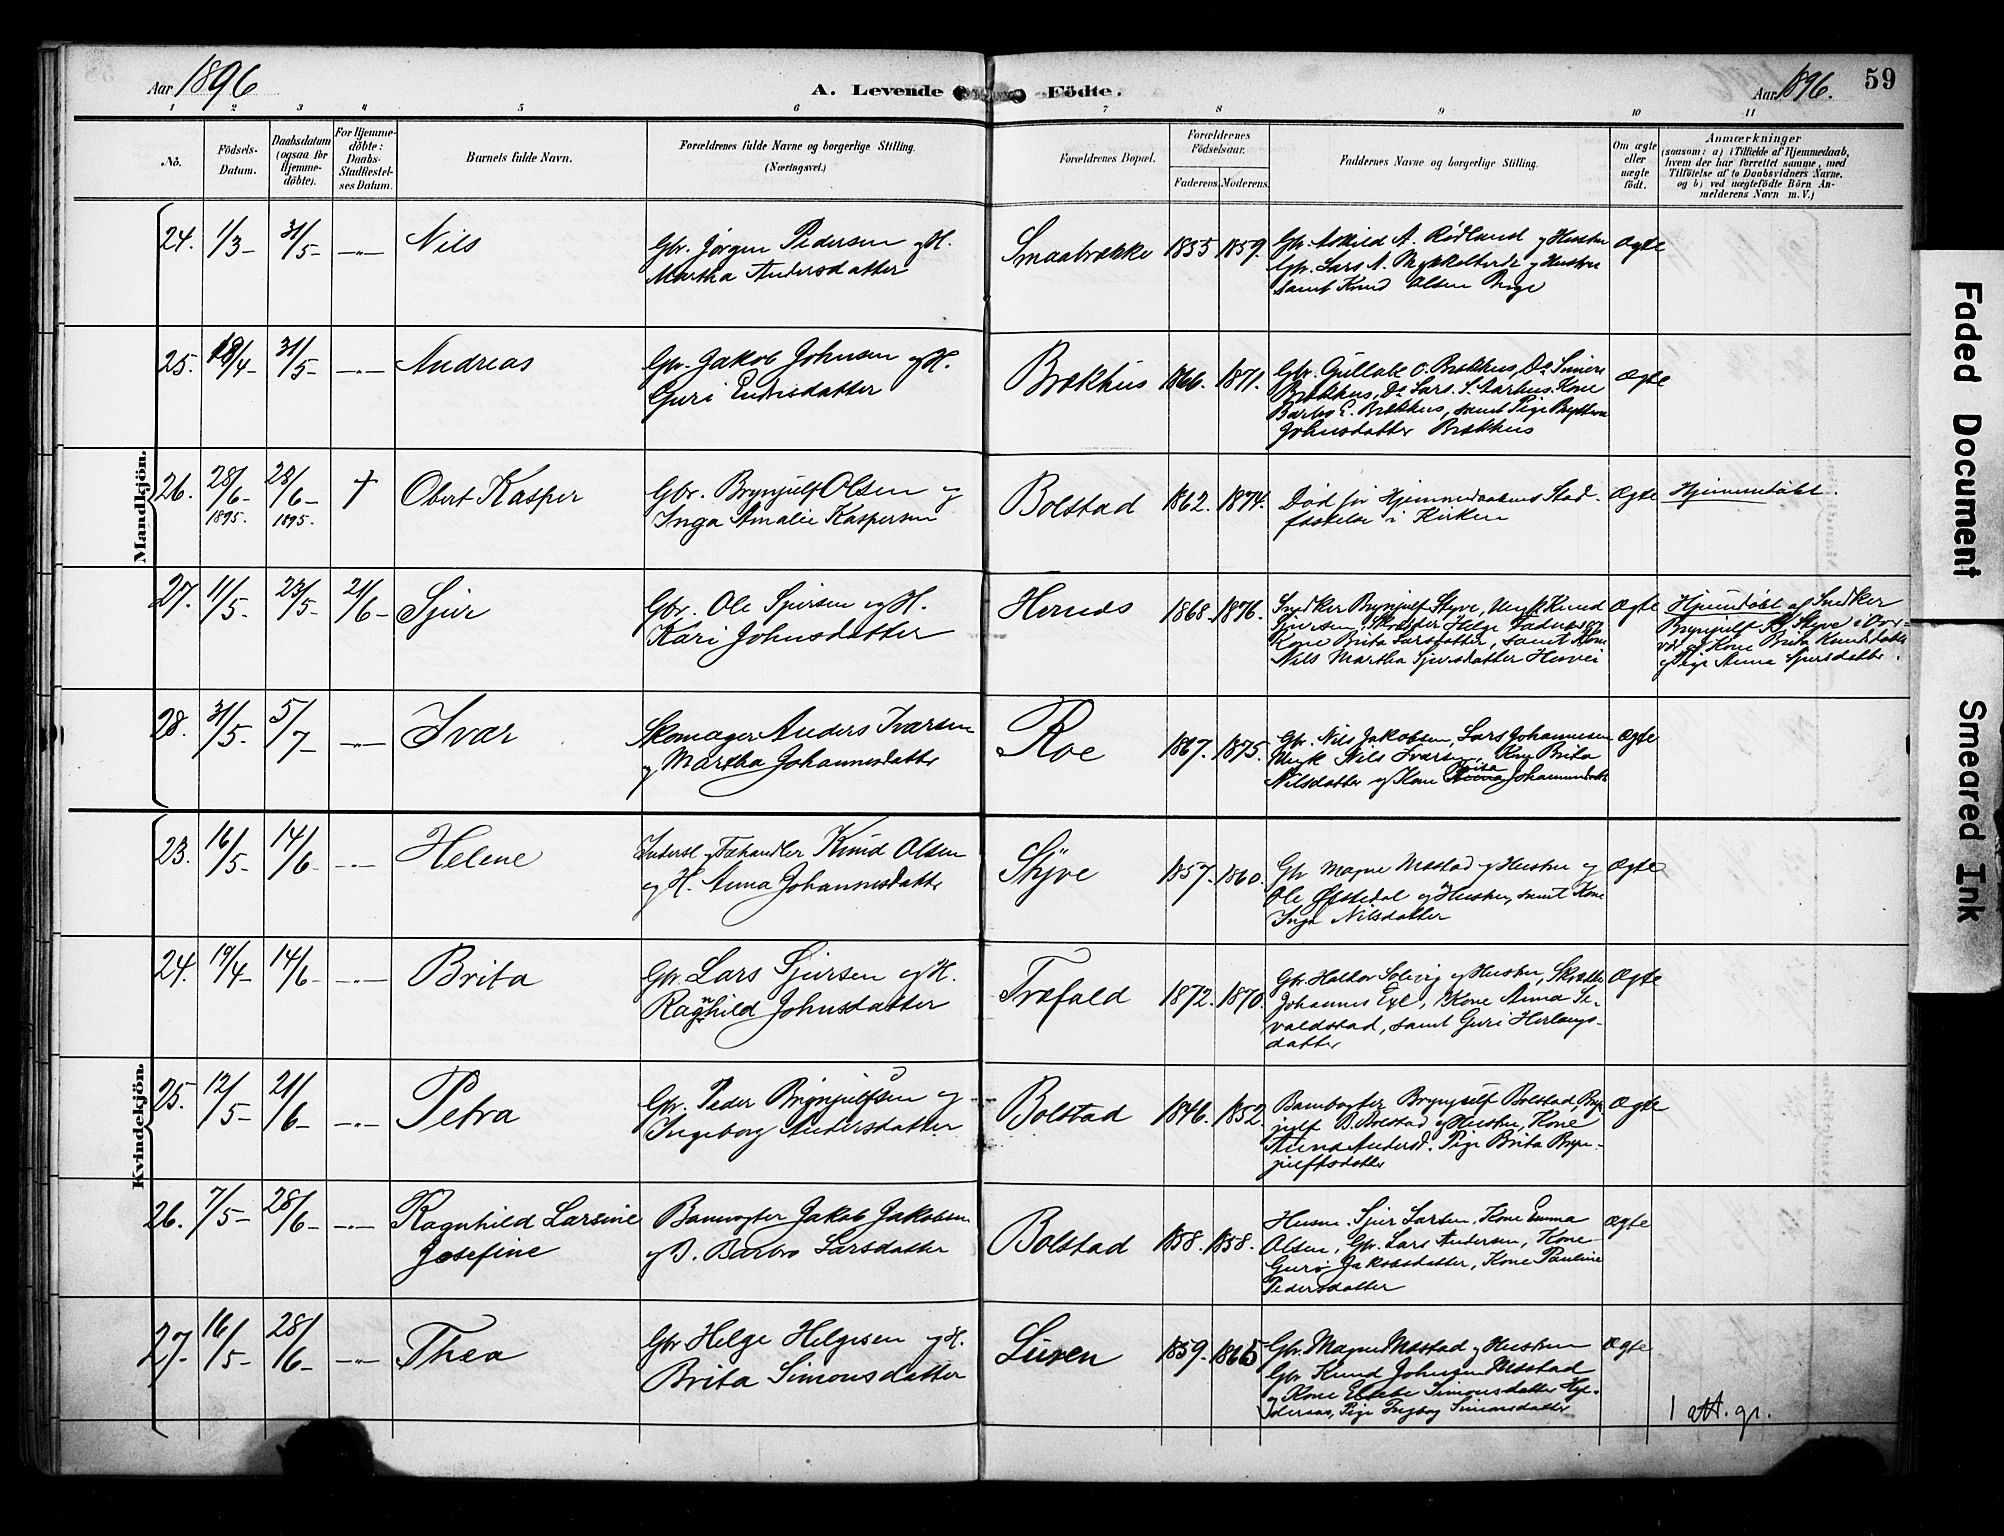 Aar 1896
A. Levende Födte.
Aar 1896.
59
1 2 3 4 5 6 7 8 9 10 11
No.
Födsels-
Datum.
Daabsdatum
(ogsaa for
Hjemme-
döbte).
For Hjemme-
döbte:
Daabs-
Stadfæstel-
ses Datum.
Barnets fulde Navn.
Forældrenes fulde Navne og borgerlige Stilling.
(Næringsvei.)
Forældrenes Bopæl.
Forældrenes
Födselsaar.
Faderens.
Moderens.
Faddernes Navne og borgerlige Stilling.
Om ægte
eller
uægte
födt.
Anmærkninger
(saasom: a) i Tilfælde af Hjemmedaab,
hvem der har forrettet samme, med
Tilföielse af to Daabsvidners Navne.
og b) ved uægtefödte Börn An-
melderens Navn m. V.)
Mandkjön.
24. 1/3 31/5 Nils
Gbr. Jørgen Pedersen og H.
Martha Andersdatter
Smaabrække 1855 1859.
Gbr. Askild A. Rødland og Hustru
Gbr. Lars A. og Hustru
samt Knud Olsen
Ægte
25. 18/4 31/5 Andreas
Gbr. Jakob Johnsen og H.
Guri
Brækhus 1866. 1871.
Gbr. Gullak O. Brækhus, Do Simon
Brækhus, Do Lars S. Aarhus. Kone
Barbro E. Brækhus, samt Pige
Johnsdatter Brækhus
Ægte
26. 28/6 1895. 28/6 1895. † Obert Kasper
Gbr. Brynjulf Olsen og
Inga Amalie Kaspersen
Bolstad 1862. 1874.
Død før Hjemmedaabens Stad-
fæstelse i Kirken
Ægte
Hjemmedøbt.
27. 11/5 23/5 21/6 Sjur
Gbr. Ole Sjursen og H.
Kari Johnsdatter
Hernes 1868. 1876.
Snedker Brynjulf Styve, Ungk Knud
Sjursen, Helge
Kone Brita Larsdatter, samt Kone
Nils Martha Sjursdatter
Ægte
Hjemdøbt af Snedker
Brynjulf Styve
Kone Brita Knudsdatter
og Pige Anna Sjursdatter.
28. 31/5 5/7 Ivar
Skomager Anders Ivarsen
og Martha Johannesdatter
Roe 1867. 1875.
Gbr. Nils Jakobsen, Lars Johannesen
Ungk Nils Ivarsen Kone Brita
Nilsdatter og Kone Brita Johannesdatter
Ægte
Kvindekjön.
23. 16/5 14/6 Helene
Inderst og Fæhandler Knud Olsen
og H. Anna Johannesdatter
Styve 1857. 1860.
Gbr Magne Mæstad og Hustru og
Ole Øfstedal og Hustru, samt Kone
Inga Nilsdatter
Ægte
24. 19/4 14/6 Brita
Gbr. Lars Sjursen og H.
Ragnhild Johnsdatter
Træfald 1872. 1870.
Gbr. Haldor Solvig og Hustru, Skrædder
Johannes, Kone Anna Se-
valdstad, samt Guri Herlaugs-
datter
Ægte
25. 12/5 21/6 Petra
Gbr. Peder Brynjulfsen og
Ingeborg Andersdatter
Bolstad 1846. 1852.
Banvogter Brynjulf Bolstad, Bryn-
julf B. Bolstad og Hustru, Kone
Anna Andersd. Pige Brita Bryn-
julfsdatter
Ægte
26. 7/5 28/6 Ragnhild Larsine
Josefine
Banvogter Jakob Jakobsen
og H. Barbro Larsdatter
Bolstad 1858. 1858.
Husm. Sjur Larsen, Kone Emma
Olsen, Gbr. Lars Andersen, Kone
Guro Jakobsdatter, Kone Pauline
Pedersdatter
Ægte
27. 16/5 28/6 Thea
Gbr Helge Helgesen og H.
Brita Simonsdatter
Luren 1859. 1865
Gbr. Magne Mæstad og Hustru
Gbr Knud Johnsen Mæstad
og Kone Simonsdatter
Pige Ingborg Simonsdatter
Ægte
1 att. gr.
Faded Document
Smeared Ink